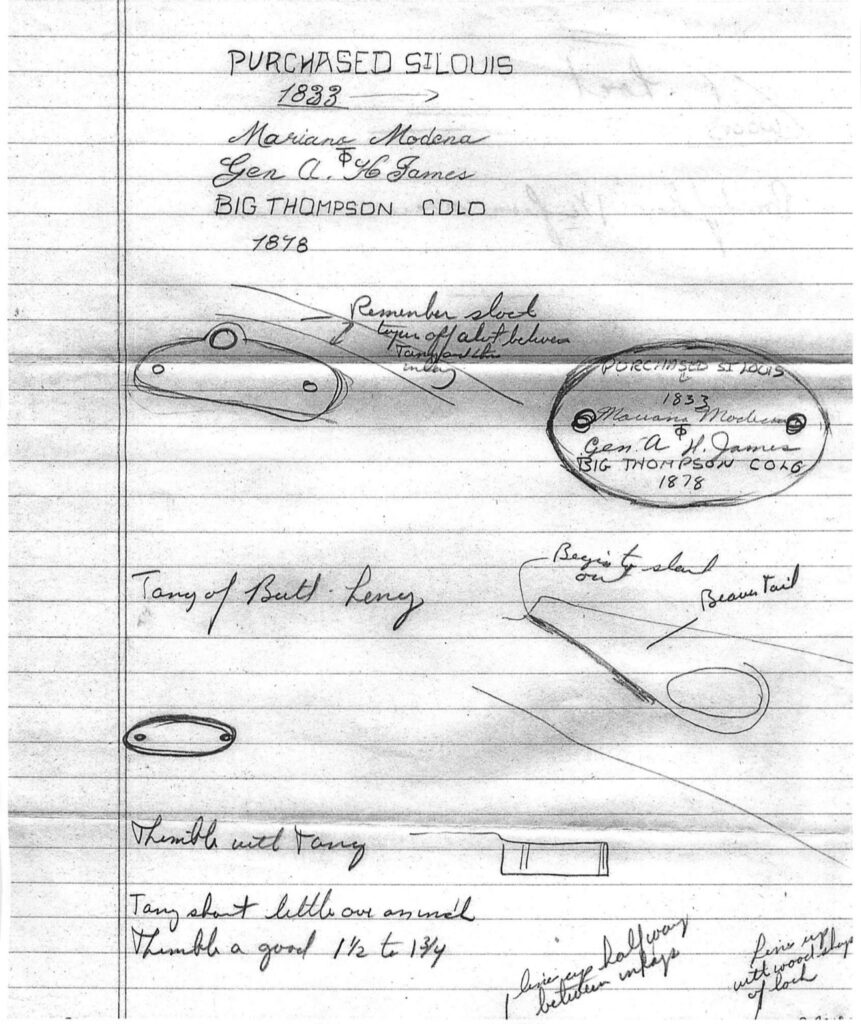 PURCHASED SILOUIS
1833
Mariano Modena
Gen A. H James
BIG THOMPSON COLO
1878
Remember
between
Tang and this
inlay
PURCHASED SI LOUIS
1833
Mariano Modena
Gen. A H. James
BIG THOMPSON COLO
1878
Begin to
out
Beaver Tail
Tang of Butt
Thimble with Tang
Tang short little over an inch
Thimble a good 1 1/2 to 1 3/4
line up halfway
between inlays
Line up
with wood
of lock